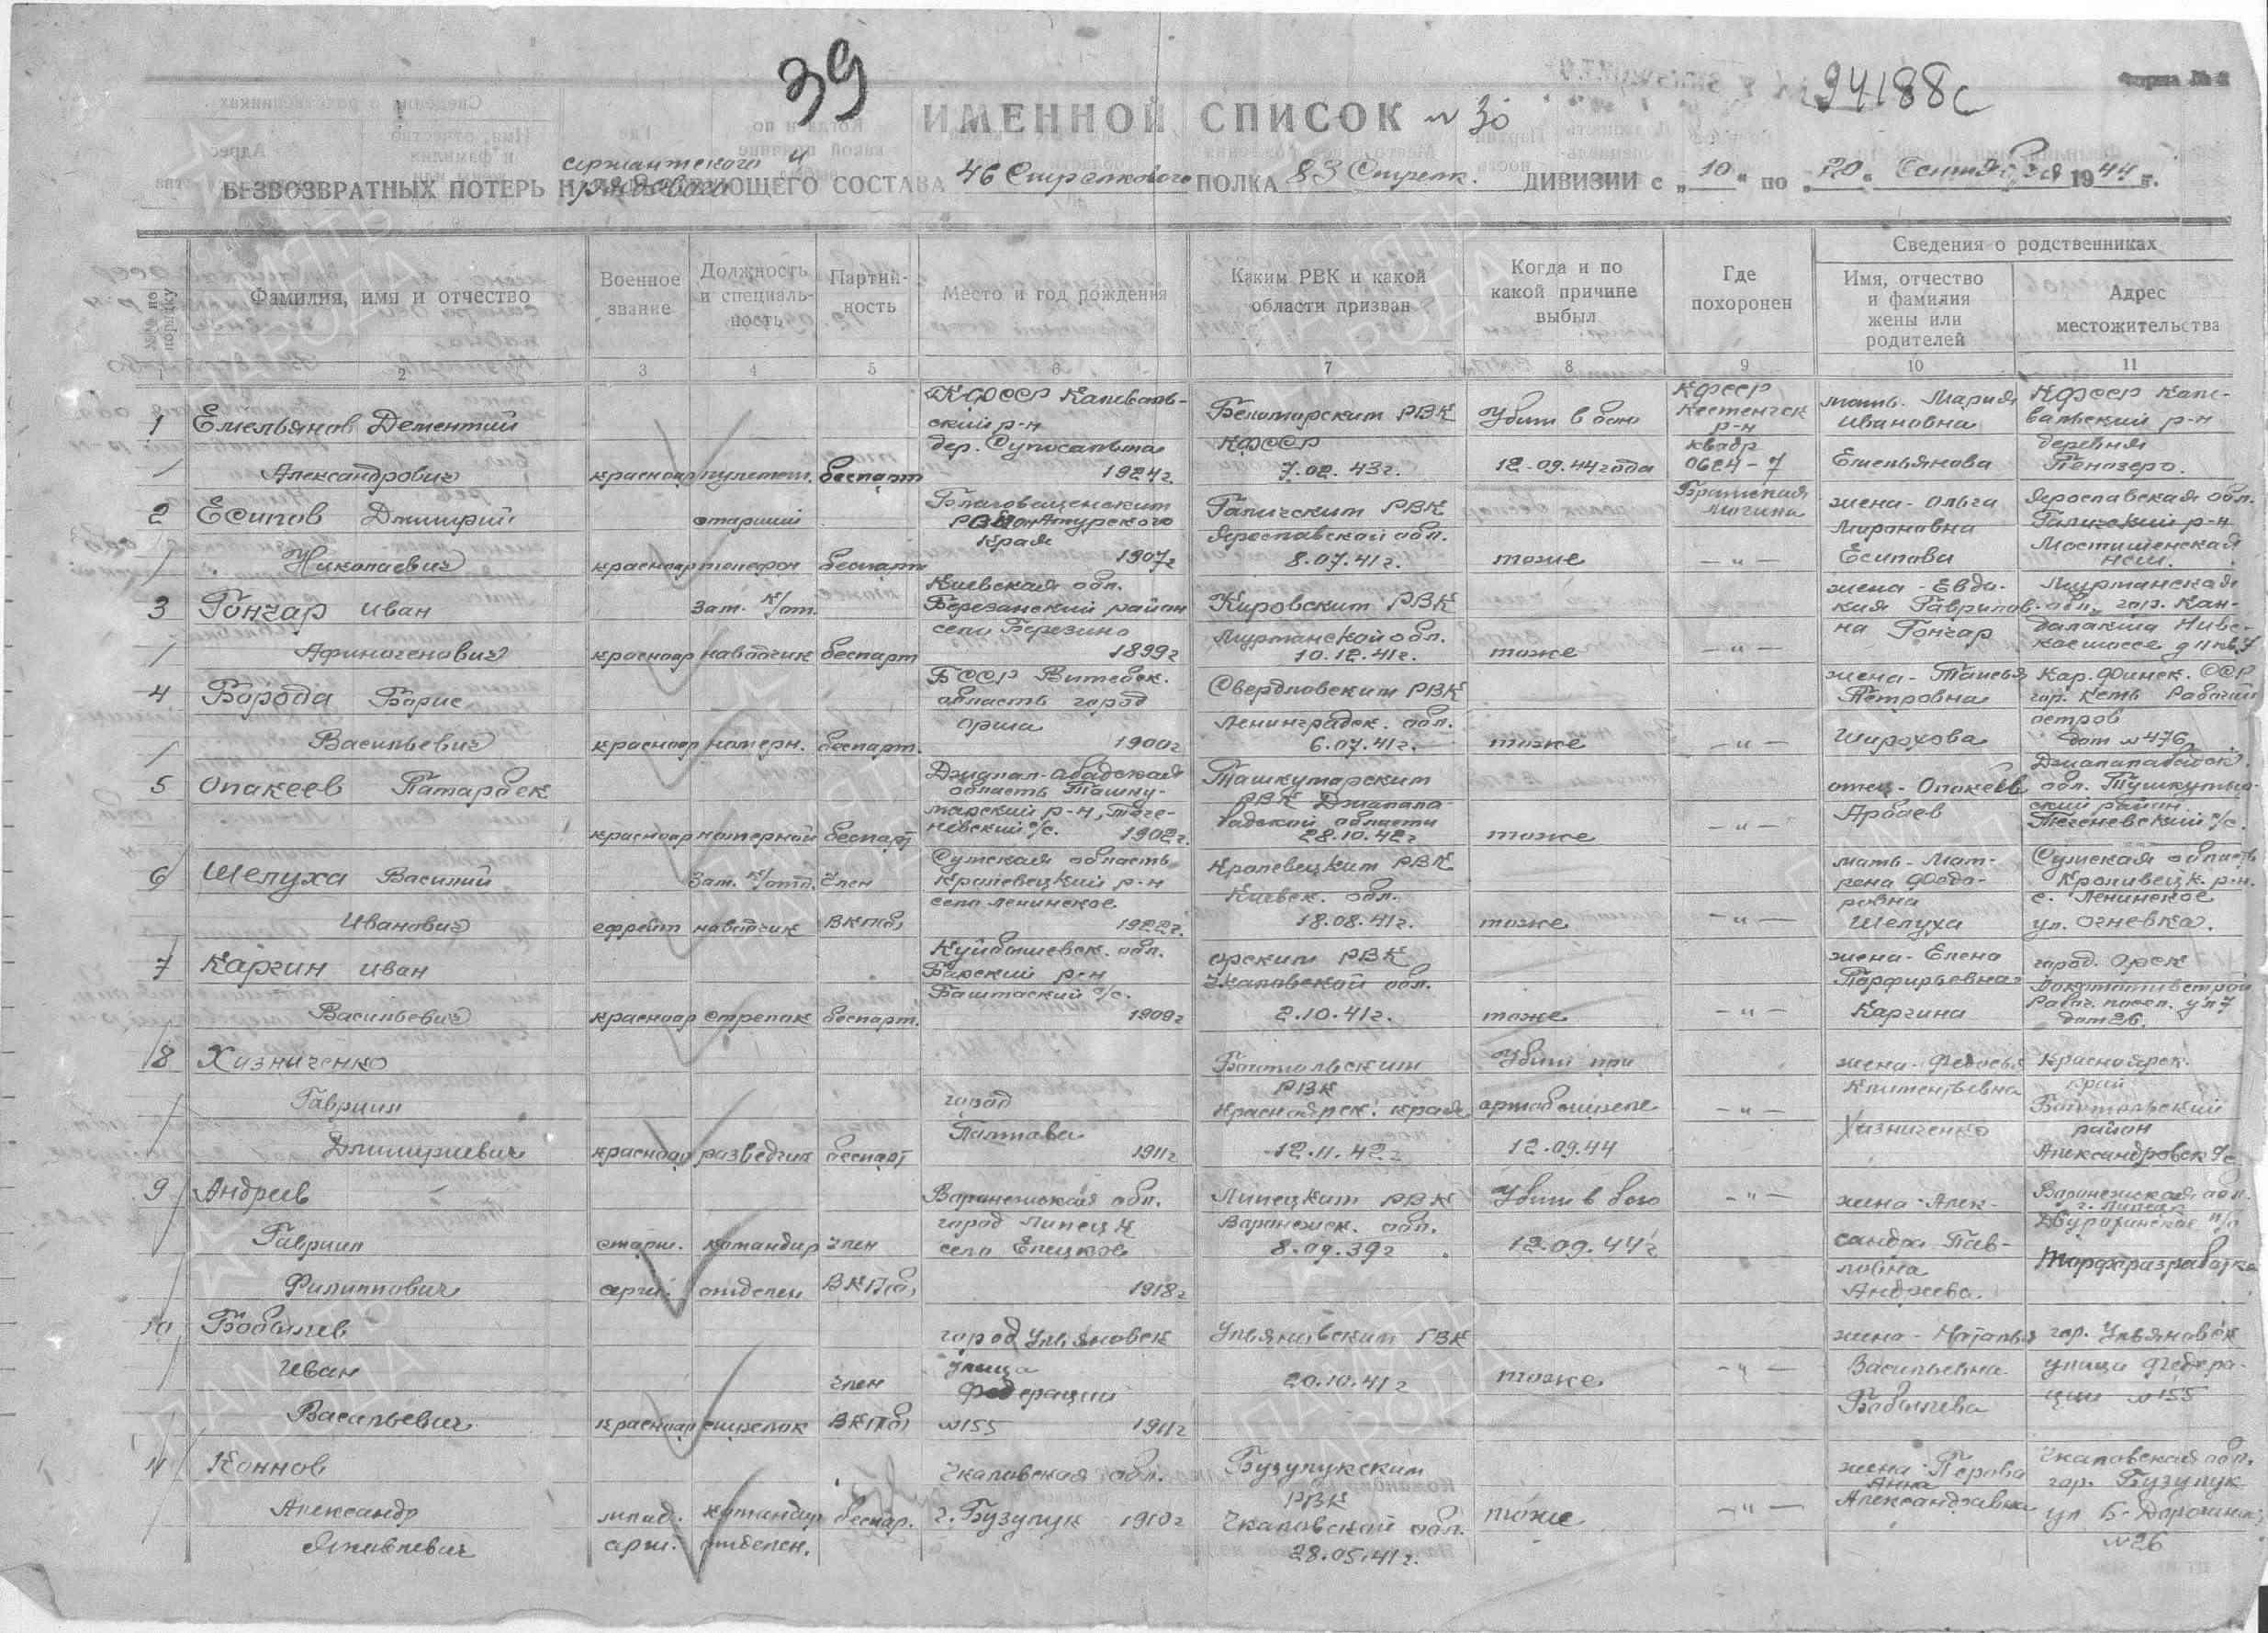 39
94188с
Форма № 2
ИМЕННОЙ СПИСОК № 30
сержантского и
рядового
БЕЗВОЗВРАТНЫХ ПОТЕРЬ НАЧАЛЬСТВУЮЩЕГО СОСТАВА 46 Стрелкового ПОЛКА 83 Стрелк. ДИВИЗИИ с „10" по „20" Сентября 1944 г.
№№ по порядку
Фамилия, имя и отчество
Военное звание
Должность и специаль- ность
Партий- ность
Место и год рождения
Каким РВК и какой области призван
Когда и по какой причине выбыл
Где похоронен
Сведения о родственниках
Имя, отчество и фамилия жены или родителей
Адрес местожительства
1 2 3 4 5 6 7 8 9 10 11
1 Емельянов Дементий
Александрович
красноар пулемет. беспарт
КФССР Калеваль-
ский р-н
дер. Супосальма
1924 г.
Беломорским РВК
КФССР
7.02.43г.
Убит в бою
12.09.44 года
КФССР
Кестеньгск
р-н
квадр
0624-7
Братская
могила
мать. Мария
Ивановна
Емельянова
КФССР Кале-
вальский р-н
деревня
Пенозеро.
2 Есипов Дмитрий
Николаевич
старший
красноар телефон беспарт
Благовещенским
РВК Амурского
Края
1907г
Галичским РВК
Ярославской обл.
8.07.41г.
тоже
—"—
жена - Ольга
Мироновна
Есипова
Ярославская обл.
Галичский р-н
3 Гончар Иван
Афиногенович
Зам. к/от.
красноар наводчик беспарт
Киевская обл.
Березанский район
село Березино
1899г
Кировским РВК
Мурманской обл.
10.12.41г.
тоже
—"—
жена - Евдо-
кия Гаврилов-
на Гончар
Мурманская
обл., гор. Кан-
далакша Нивс-
кое шоссе
4 Борода Борис
Васильевич
красноар номерн. беспарт.
БССР Витебск.
область город
Орша
1900г
Свердловским РВК
Ленинградск. обл.
6.07.41г.
тоже
—"—
жена - Таисья
Петровна
Широхова
Кар. Финск. ССР
гор. Кемь Рабочий
остров
дом №476
5 Опакеев Патарбек
красноар номерной беспарт
Джалал-Абадская
область Ташку-
марский р-н, Теге-
невский с/с. 1902г.
Ташкумарским
РВК Джалала-
бадской области
28.10.42г
тоже
—"—
отец - Опакеев
Арбаев
Джалалабадск.
ский район
Тегеневский с/с.
6 Шелуха Василий
Иванович
Зам. к/отд. Член
ефрейт наводчик ВКПб)
Сумская область
Кролевецкий р-н
село Ленинское
1922г.
Кролевецким РВК
Киевск. обл.
18.08.41г.
тоже
—"—
мать - Мат-
рена Федо-
ровна
Шелуха
Сумская область
Кроливецк. р-н.
с. Ленинское
ул. Огневка.
7 Каргин Иван
Васильевич
красноар стрелок беспарт.
Куйбышевск. обл.
Борский р-н
1909г
Орским РВК
Чкаловской обл.
2.10.41г.
тоже
—"—
жена - Елена
Порфирьевна
Каргина
город. Орск
Локомотивстрой
Рабоч. посел. ул 7
дом 26.
8 Хизниченко
Гавриил
Дмитриевич
красноар разведчик беспарт
город
Полтава
1911г
Боготольским
РВК
Красноярск. края
12.11.42г
Убит при
артобстреле
12.09.44
—"—
жена - Федосья
Климентьевна
Хизниченко
Красноярск.
край
Боготольский
район
Александровск с/с
9 Андреев
Гавриил
Филиппович
старш. командир член
серж. отделен ВКПб)
Воронежская обл.
город Липецк
село Елецкое
1918г
Липецким РВК
Воронежск. обл.
8.09.39г
Убит в бою
12.09.44г
—"—
жена - Алек-
сандра Пав-
ловна
Андреева.
Воронежская обл.
г. Липецк
Торфоразработка
10 Бобылев
Иван
Васильевич
член
красноар стрелок ВКПб)
город Ульяновск
улица
Федерации
№155 1911г
Ульяновским ГВК
20.10.41г
тоже
—"—
жена - Наталья
Васильевна
Бобылева
гор. Ульяновск
улица Федера-
ции №155
11 Коннов
Александр
Яковлевич
млад. командир беспар.
серж. отделен.
Чкаловская обл.
г. Бузулук 1910г
Бузулукским
РВК
Чкаловской обл.
28.05.41г.
тоже
—"—
жена - Перова
Анна
Александравна
Чкаловская обл.
гор. Бузулук
№26
ПАМЯТЬ НАРОДА